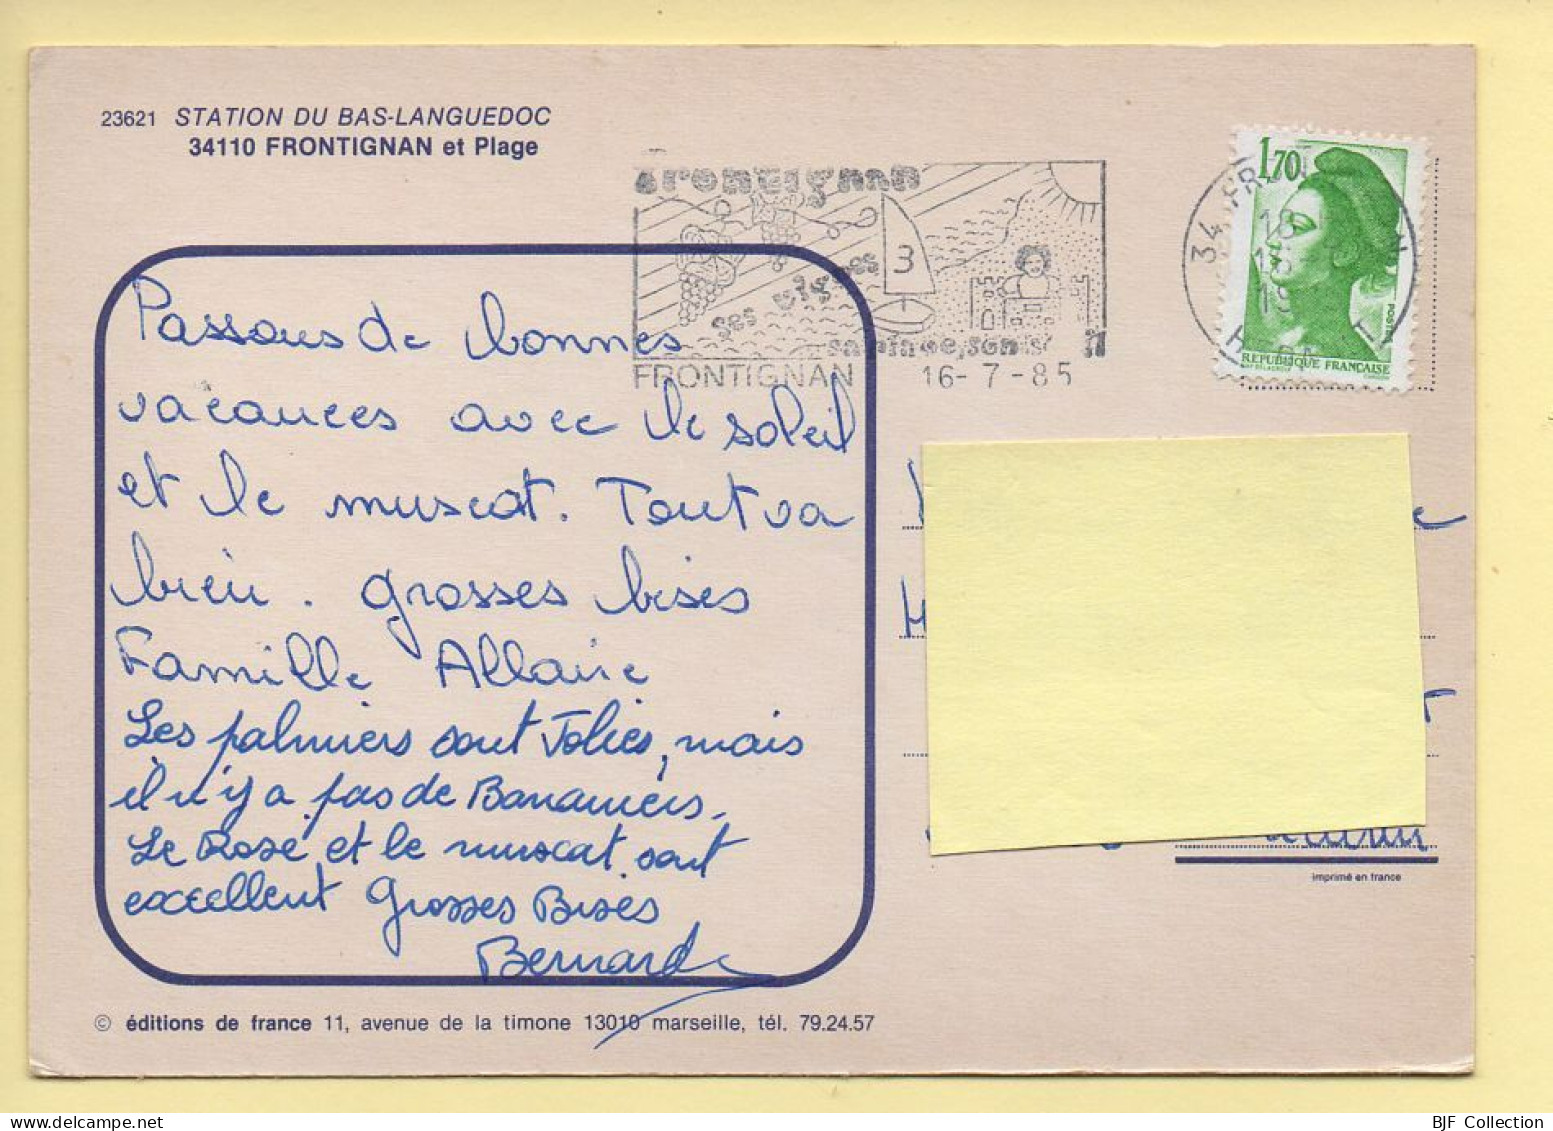 23621 STATION DU BAS-LANGUEDOC
34110 FRONTIGNAN et Plage
Frontignan
ses vignes
3
sa plage, son soleil
FRONTIGNAN 16-7-85
1,70
POSTES
REPUBLIQUE FRANCAISE
34 FRONTIGNAN
18
16
19
HERAULT
Passons de bonnes
vacances avec le soleil
et le muscat. Tout va
bien. grosses bises
Famille Allaire
Les palmiers sont Jolies, mais
il n'y a pas de Bananiers.
Le Rosé et le muscat sont
excellent Grosses Bises
Bernard
imprimé en france
© éditions de france 11, avenue de la timone 13010 marseille, tél. 79.24.57
BJF Collection